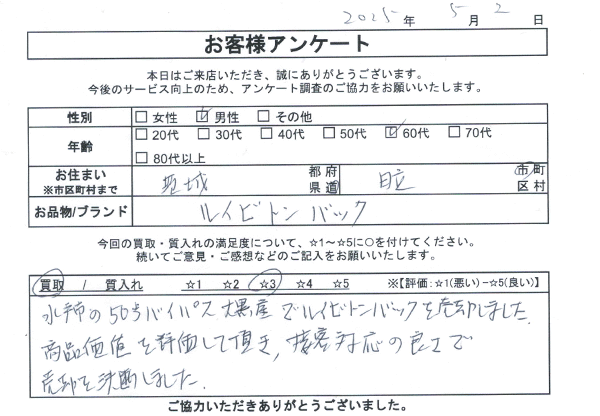 2025年 5月 2日
お客様アンケート
本日はご来店いただき、誠にありがとうございます。
今後のサービス向上のため、アンケート調査のご協力をお願いいたします。
性別 □女性 ☑男性 □その他
年齢 □20代 □30代 □40代 □50代 ☑60代 □70代
□80代以上
お住まい ※市区町村まで 茨城 都府県道 日立 市町区村
お品物/ブランド ルイビトンバック
今回の買取・質入れの満足度について、☆1~☆5に○を付けてください。
続いてご意見・ご感想などのご記入をお願いいたします。
買取 / 質入れ ☆1 ☆2 ☆3 ☆4 ☆5 ※【評価:☆1(悪い)-☆5(良い)】
水戸の50号バイパス大黒屋でルイビトンバックを売却しました。
商品価値を評価して頂き、接客対応の良さで
売却を決断しました。
ご協力いただきありがとうございました。